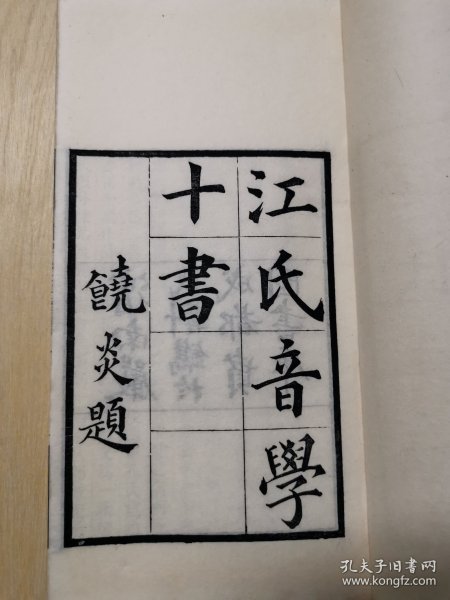 江氏音學
十書
饒炎題
孔夫子旧书网
www.kongfz.com